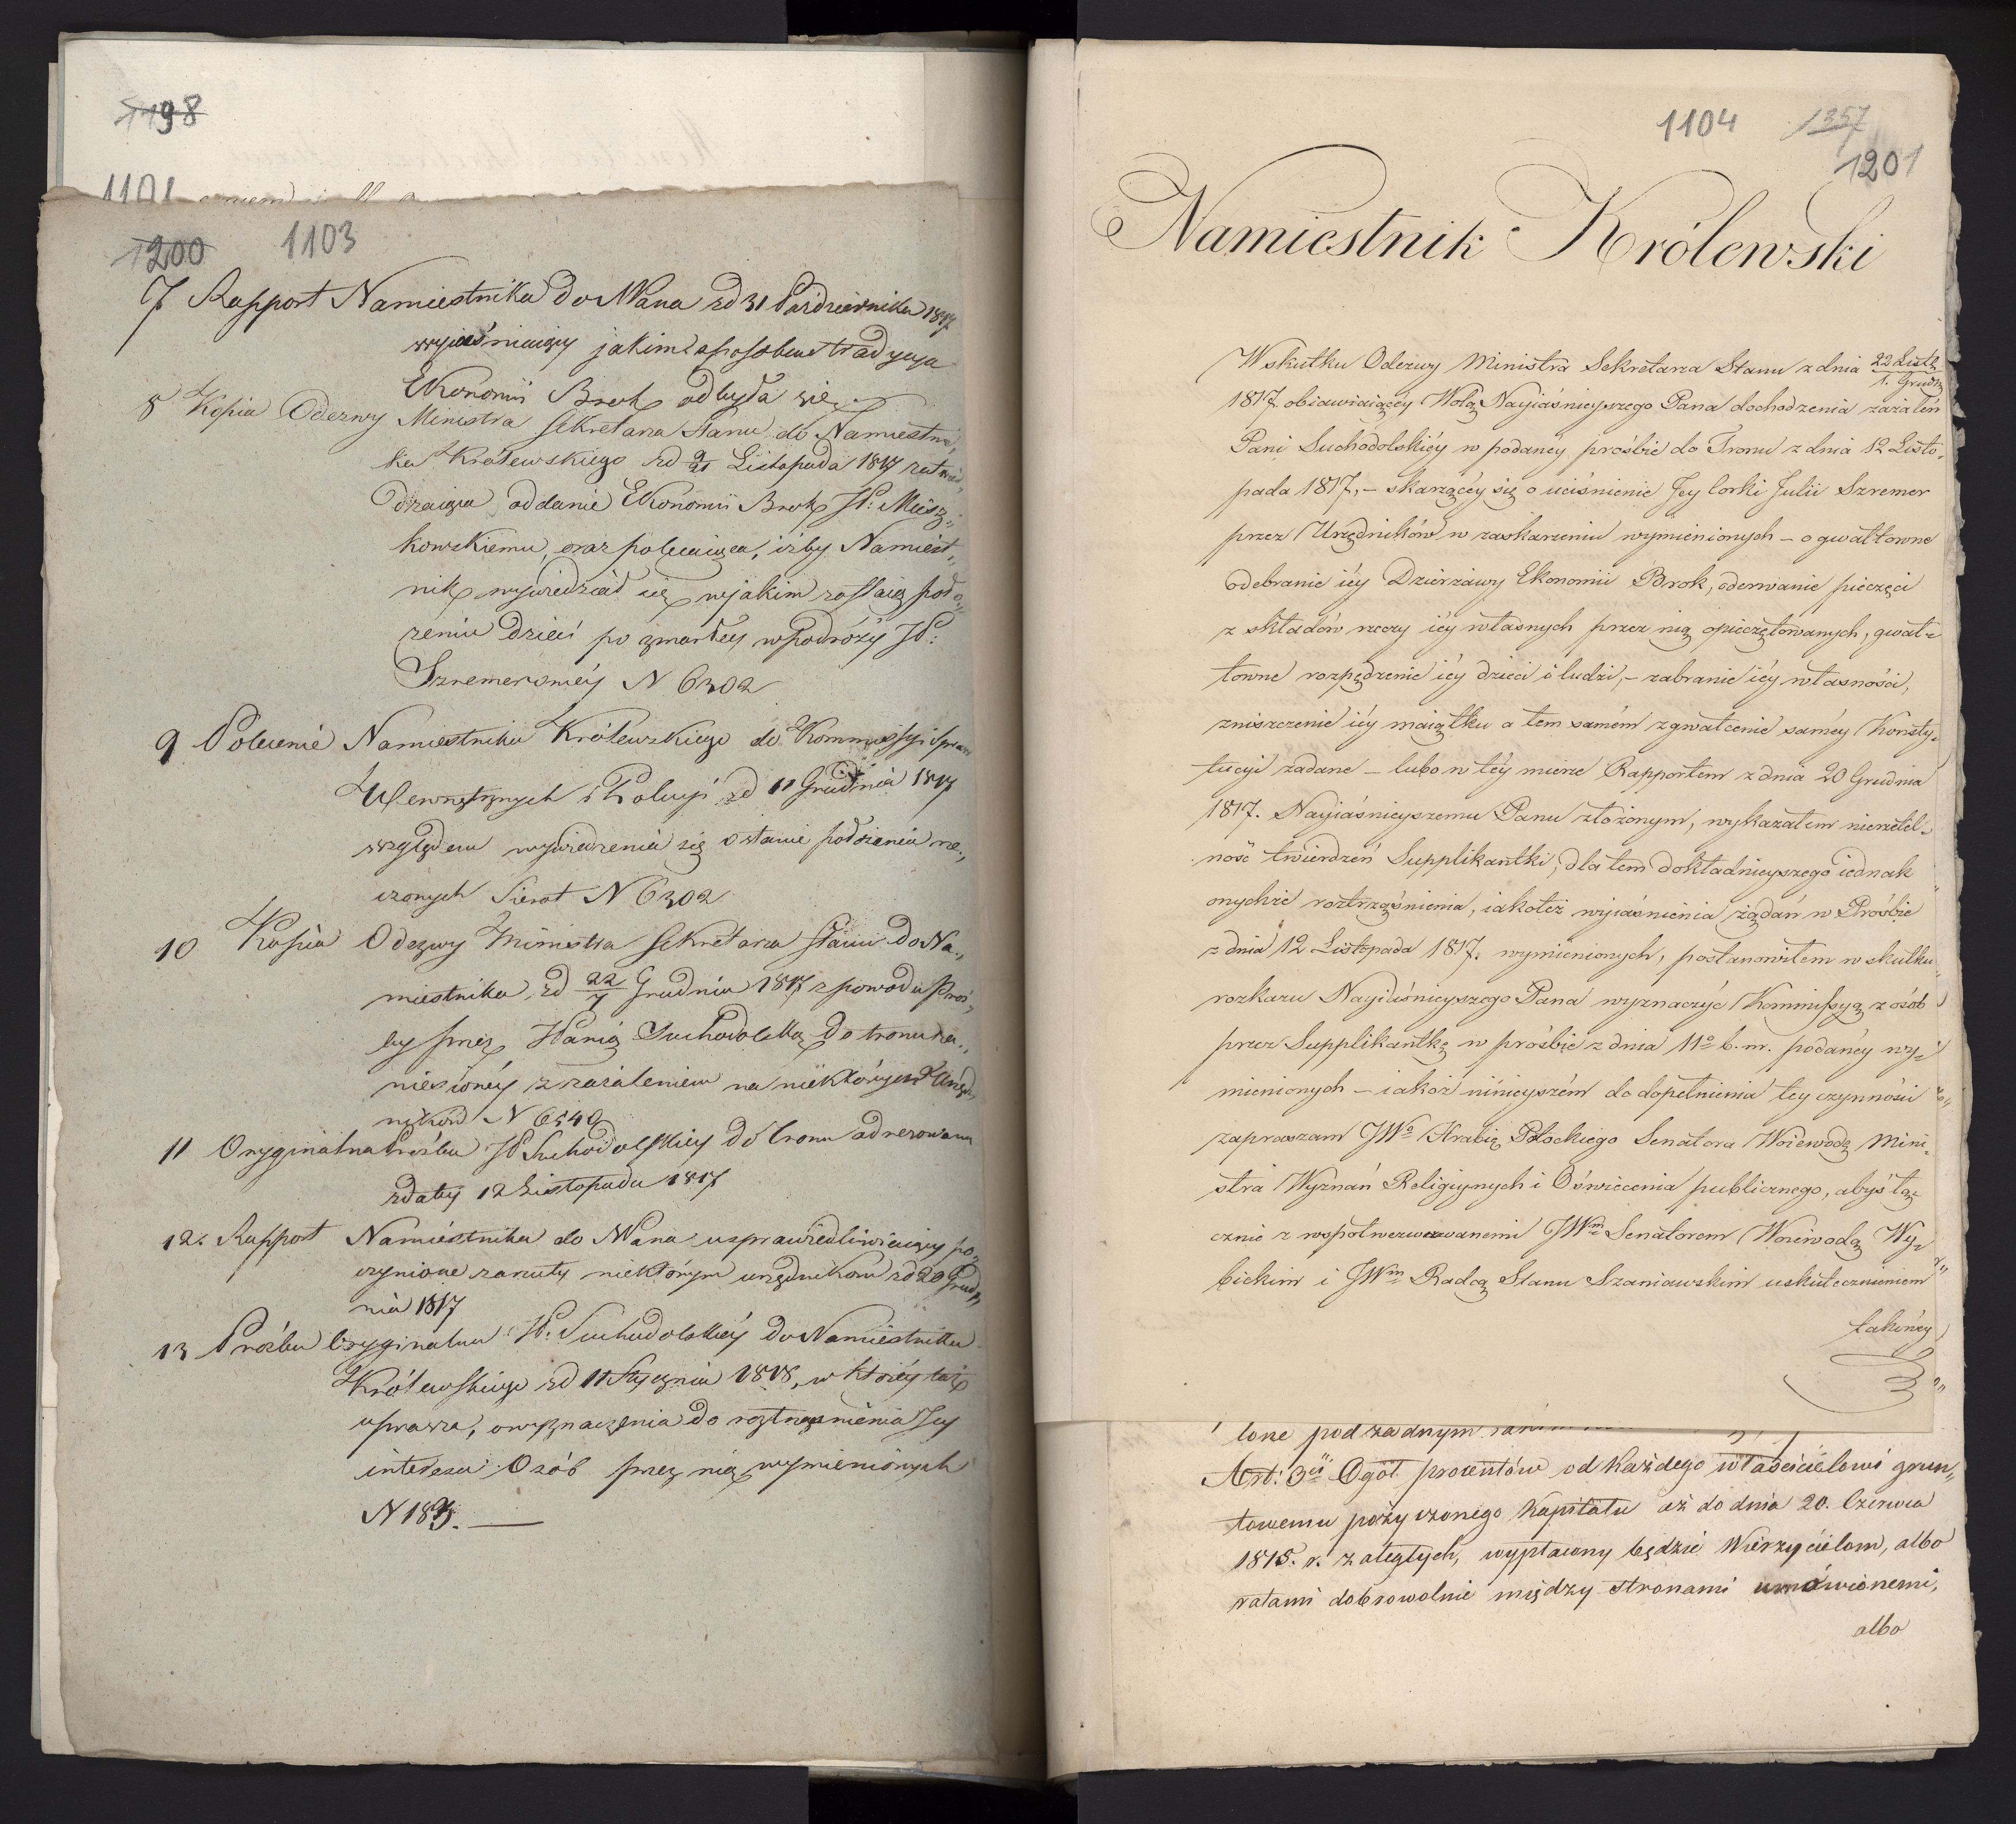 1198
1101
1200 1103
7 Rapport Namiestnika do NPana zd 31 Pazdziernika 1817
wyjaśniaiący jakim sposobem tradycya
Ekonomii Brok odbyła się.
8 Kopia Odezwy Ministra Sekretarza Stanu do Namiestni„
ka Królewskiego zd 9/21 Listopada 1817 zatwier„
dzaiąca oddanie Ekonomii Brok JP: Miesz„
kowskiemu, oraz polecaiąca, iżby Namiest„
nik wywiedział się w jakim zostaią poło„
żeniu dzieci po zmarłey w podróży JP:
Szremerowéy N 6302
9 Polecenie Namiestnika Królewskiego do Kommissyi Spraw
Wewnętrznych i Policyi zd 11 Grudnia 1817
względem wywiedzenia się o stanie położenia rze„
czonych Sierot N 6302
10 Kopia Odezwy Ministra Sekretarza Stanu do Na„
miestnika zd 22/7 Grudnia 1817 z powodu Proś„
by przez Panią Suchodolską do tronu za„
niesionéy z zażaleniem na niektórych Urzęd„
ników N 6540
11 Oryginalna Prośba JP Suchodolskiey do tronu adresowana
z daty 12 Listopada 1817
12. Rapport Namiestnika do NPana usprawiedliwiaiący po„
czynione zarzuty niektórym urzędnikom zd 20 Grud„
nia 1817
13 Prośba Oryginalna JP. Suchodolskiéy do Namiestnika
Królewskiego zd 11 Stycznia 1818, w któréy taż
uprasza, o wyznaczenia do roztrząśnienia Jey
interesu Osób przez nią wymienionych
N 183. —
1104 1357
1201
Namiestnik Królewski
W skutku Odezwy Ministra Sekretarza Stanu z dnia 22 Listp/1. Grudn
1817. obiawiaiącéy Wolą Nayiaśnieyszego Pana dochodzenia zażaleń
Pani Suchodolskiéy w podanéy prośbie do Tronu z dnia 12 Listo„
pada 1817, – skarżącéy się o uciśnienie Jey Corki Julii Szremer
przez Urzędników w zaskarżeniu wymienionych – o gwałtowne
odebranie iéy Dzierżawy Ekonomii Brok, oderwanie pieczęci
z składów rzeczy iéy własnych przez nią opieczętowanych, gwał„
towne rozpędzenie iéy dzieci i ludzi, – zabranie iéy własności,
zniszczenie iéy maiątku a tem samém zgwałcenie saméy Konsty„
tucyi zadane – lubo w téy mierze Rapportem z dnia 20 Grudnia
1817. Nayiaśnieyszemu Panu złożonym, wykazałem nierzetel„
ność twierdzeń Supplikantki, dla tem dokładnieyszego iednak
onychże roztrząśnienia, iakoteż wyiaśnienia żądań w Prośbie
z dnia 12 Listopada 1817. wymienionych, postanowiłem w skutku
rozkazu Nayiaśnieyszego Pana wyznaczyć Kommissyą z osób
przez Supplikantkę w prośbie z dnia 11º b. m. podanéy wy„
mienionych – iakoż ninieyszém do dopełnienia tey czynności
zapraszam JWº Hrabię Potockiego Senatora Woiewodę Mini„
stra Wyznań Religiynych i Oświecenia publicznego, abyś łą„
cznie z wspołwezwanemi JWm Senatorem Woiewodą Wy„
bickim i JWm Radcą Stanu Szaniawskim uskutecznieniem
takowey
lone pod żadnym
Art: 3ci Ogół procentów od każdego właścicielowi grun„
towemu pożyczonego Kapitału aż do dnia 20. Czerwca
1815. r. zaległych, wypłacony będzie Wierzycielom, albo
ratami dobrowolnie między stronami umówionemi,
albo